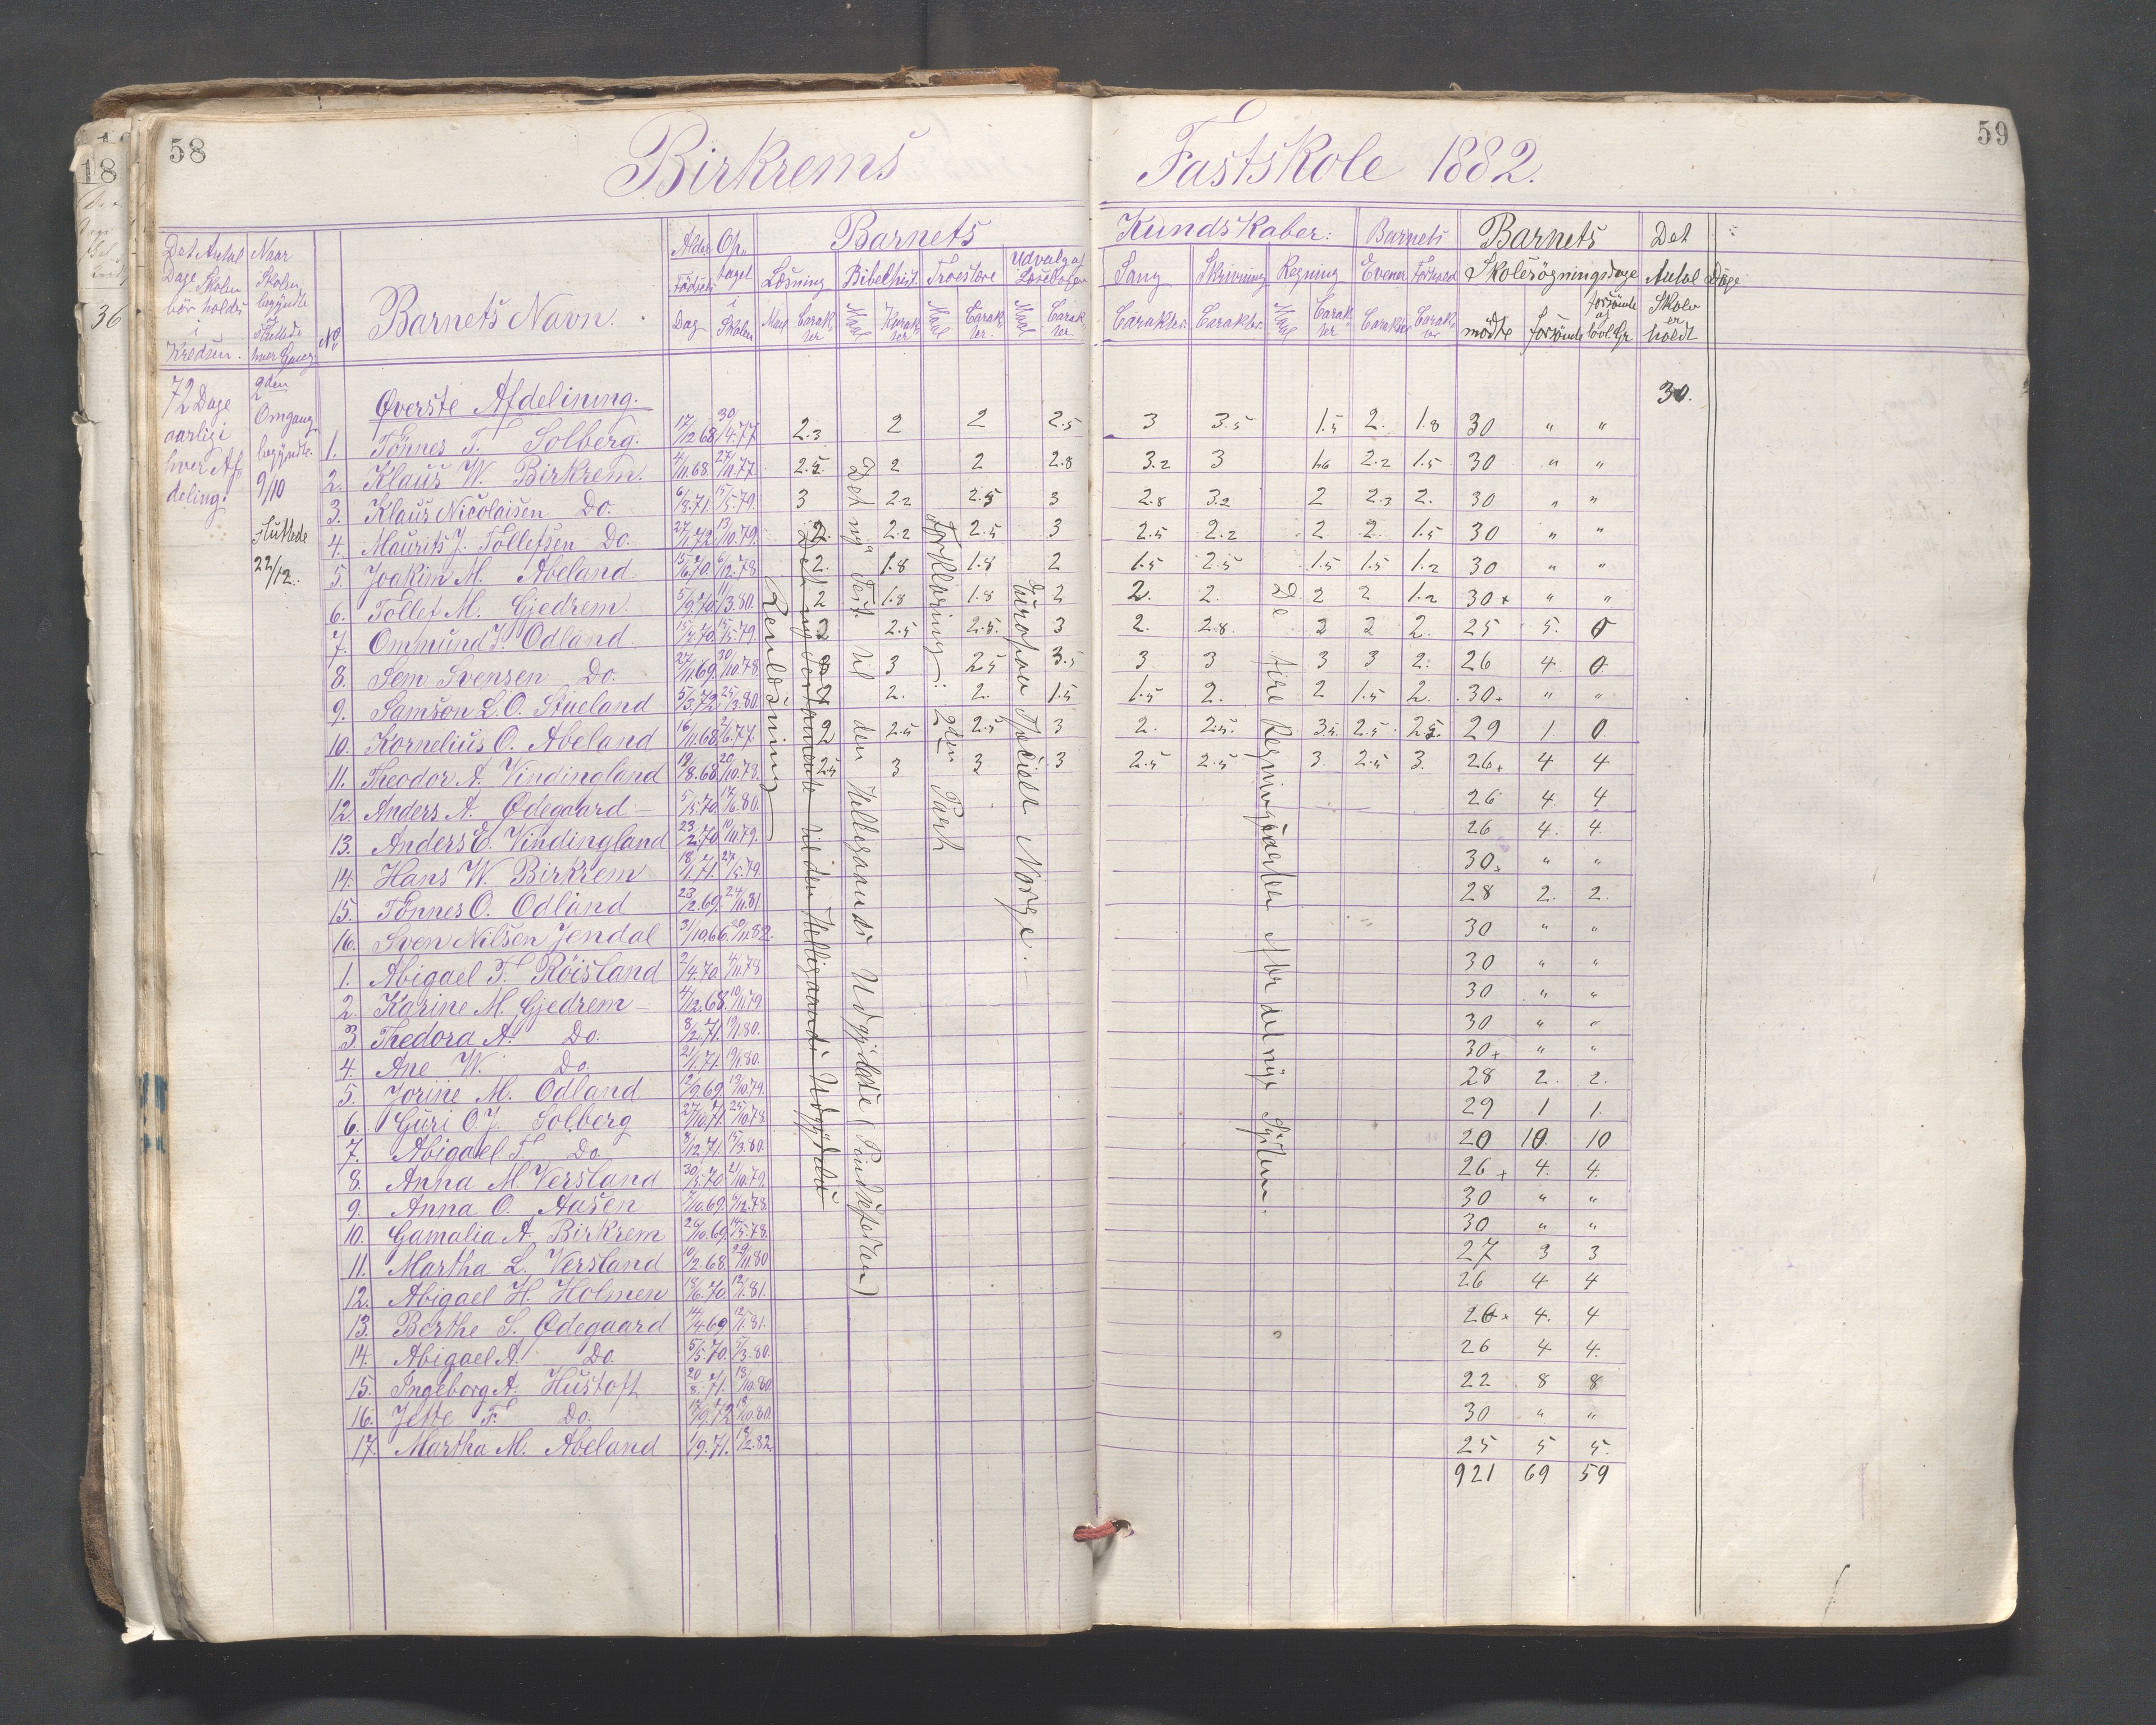 58
Birkrems
Fastskole 1882.
59
Det Antal Dage Skolen bör holdes i Kredsen.
Naar Skolen begyndte og sluttede hver Gang.
No
Barnets Navn.
Alder Födsels Dag
Optaget i Skolen
Barnets
Kundskaber:
Læsning Maal Carakter
Bibelhist. Maal Karakter
Troeslære Maal Carakter
Udvalg af Læsebogen Maal Carakter
Sang Carakter.
Skrivning Carakter.
Regning Maal Carakter
Barnets
Evner Carakter
Forhold Carakter
Barnets Skolesögningsdage
mödte forsömte forsömte af lovl. Gr
Det Antal Dage Skole er holdt
72 Dage aarlig i hver Afdeling.
2den Omgang begyndte 9/10
sluttede 22/12.
Øverste Afdelining.
30.
1. Tönnes T. Solberg. 17/12 68 30/4.77 2.3 2 2 2.5 3 3.5 1.5 2. 1.8 30 " "
2. Klaus W. Birkrem. 4/11.68. 27/11.77 2.5. 2 2 2.8 3.2 3 2.2 1.5 30 " "
3. Klaus Nicolaisen Do. 6/8.71. 15/5.79. 3 2.2 2.5 3 2.8 3.2 2 2.3 2. 30 " "
4. Maurits J. Tollefsen Do. 27/1.72. 13/10.79. 2. 2.2 2.5 3 2.5 2.2 2 2. 1.5 30 " "
5. Joakim M. Abeland 15/6.70. 6/12.78 2. 1.8 1.8 2 1.5 2.5 1.5 1.5 1.2 30 " "
6. Tollef M. Gjedrem. 5/9.70. 11/3.80. 2 1.8 1.8 2 2. 2. 2 2 1.2 30+ " "
7. Ommund F. Odland. 15/2.70. 15/5.79. 2 2.5 2.5. 3 2. 2.8. 2 2 2. 25 5. 0
8. Sem Svensen Do. 27/11.69. 30/10.78. 3 2.5 3.5 3 3 3 3 2. 26 4. 0.
9. Samson L.O. Stueland 5/3.72. 25/3.80. 2 2. 2. 1.5 1.5 2. 2 1.5 2. 30+ " "
10. Kornelius O. Abeland 16/11.68. 2/6.77. 2 2.5 2.5 3 2. 2.5. 3.5. 2.5. 2.5. 29 1 0
11. Theodor A. Vindingland 19/8.68. 20/10.78. 2.5 3 3 3 2.5 2.5 3. 2.5 3. 26+ 4 4
12. Anders A. Ødegaard 5/5.70. 17/6.80. 26 4. 4
13. Anders E. Vindingland 23/2.70. 10/11.79. 26 4. 4.
14. Hans W. Birkrem 18/1.71. 27/5.79 30+ " "
15. Tönnes O. Odland 23/2.69. 24/11.81. 28 2. 2.
16. Sven Nilsen Jendal 3/10.66. 30 " "
1. Abigael F. Röisland 2/4.70. 4/11.78 30 " "
2. Karine M. Gjedrem 4/12.68. 10/11.79 30 " "
3. Thedora A. Do. 8/2.71. 19/1.80. 30 " "
4. Ane W. Do. 21/1.71. 19/1.80. 30+ " "
5. Jorine M. Odland 12/9.69. 13/10.79. 28 2. 2.
6. Guri O.J. Solberg 27/10.71. 25/10.78. 29 1 1.
7. Abigael T. Do. 8/12.71. 15/3.80. 20 10. 10
8. Anna M. Versland 30/5.70 21/10.79. 26+ 4. 4.
9. Anna O. Aasen 7/10.69. 6/12.78. 30 " "
10. Gamalia A. Birkrem 26/10.69. 14/5.78. 30 " "
11. Martha L. Versland 10/2.68. 29/11.80 27 3 3
12. Abigael H. Holmen 18/6.70. 12/1.81. 26 4 4
13. Berthe S. Ødegaard 14/4.69 12/1.81. 26+ 4. 4
14. Abigael A. Do. 5/5.70. 5/3.80. 26 4 4.
15. Ingeborg A. Hustoft 20/8.71. 18/10.80. 22 8 8
16. Jette F. Do. 17/9.72 13/10.80. 30 " "
17. Martha M. Abeland 1/9.71. 18/2.82. 25 5 5.
921 69 59
Renlæsning
Det nye Testamente til den Helligaands Udgydelse
Det nye Test. til den Helligaands Udgydelse (Pindsefesten)
Forklaring: 2den Part
Europa Norge.
De fire Regningsarter efter det nye System.
18
36